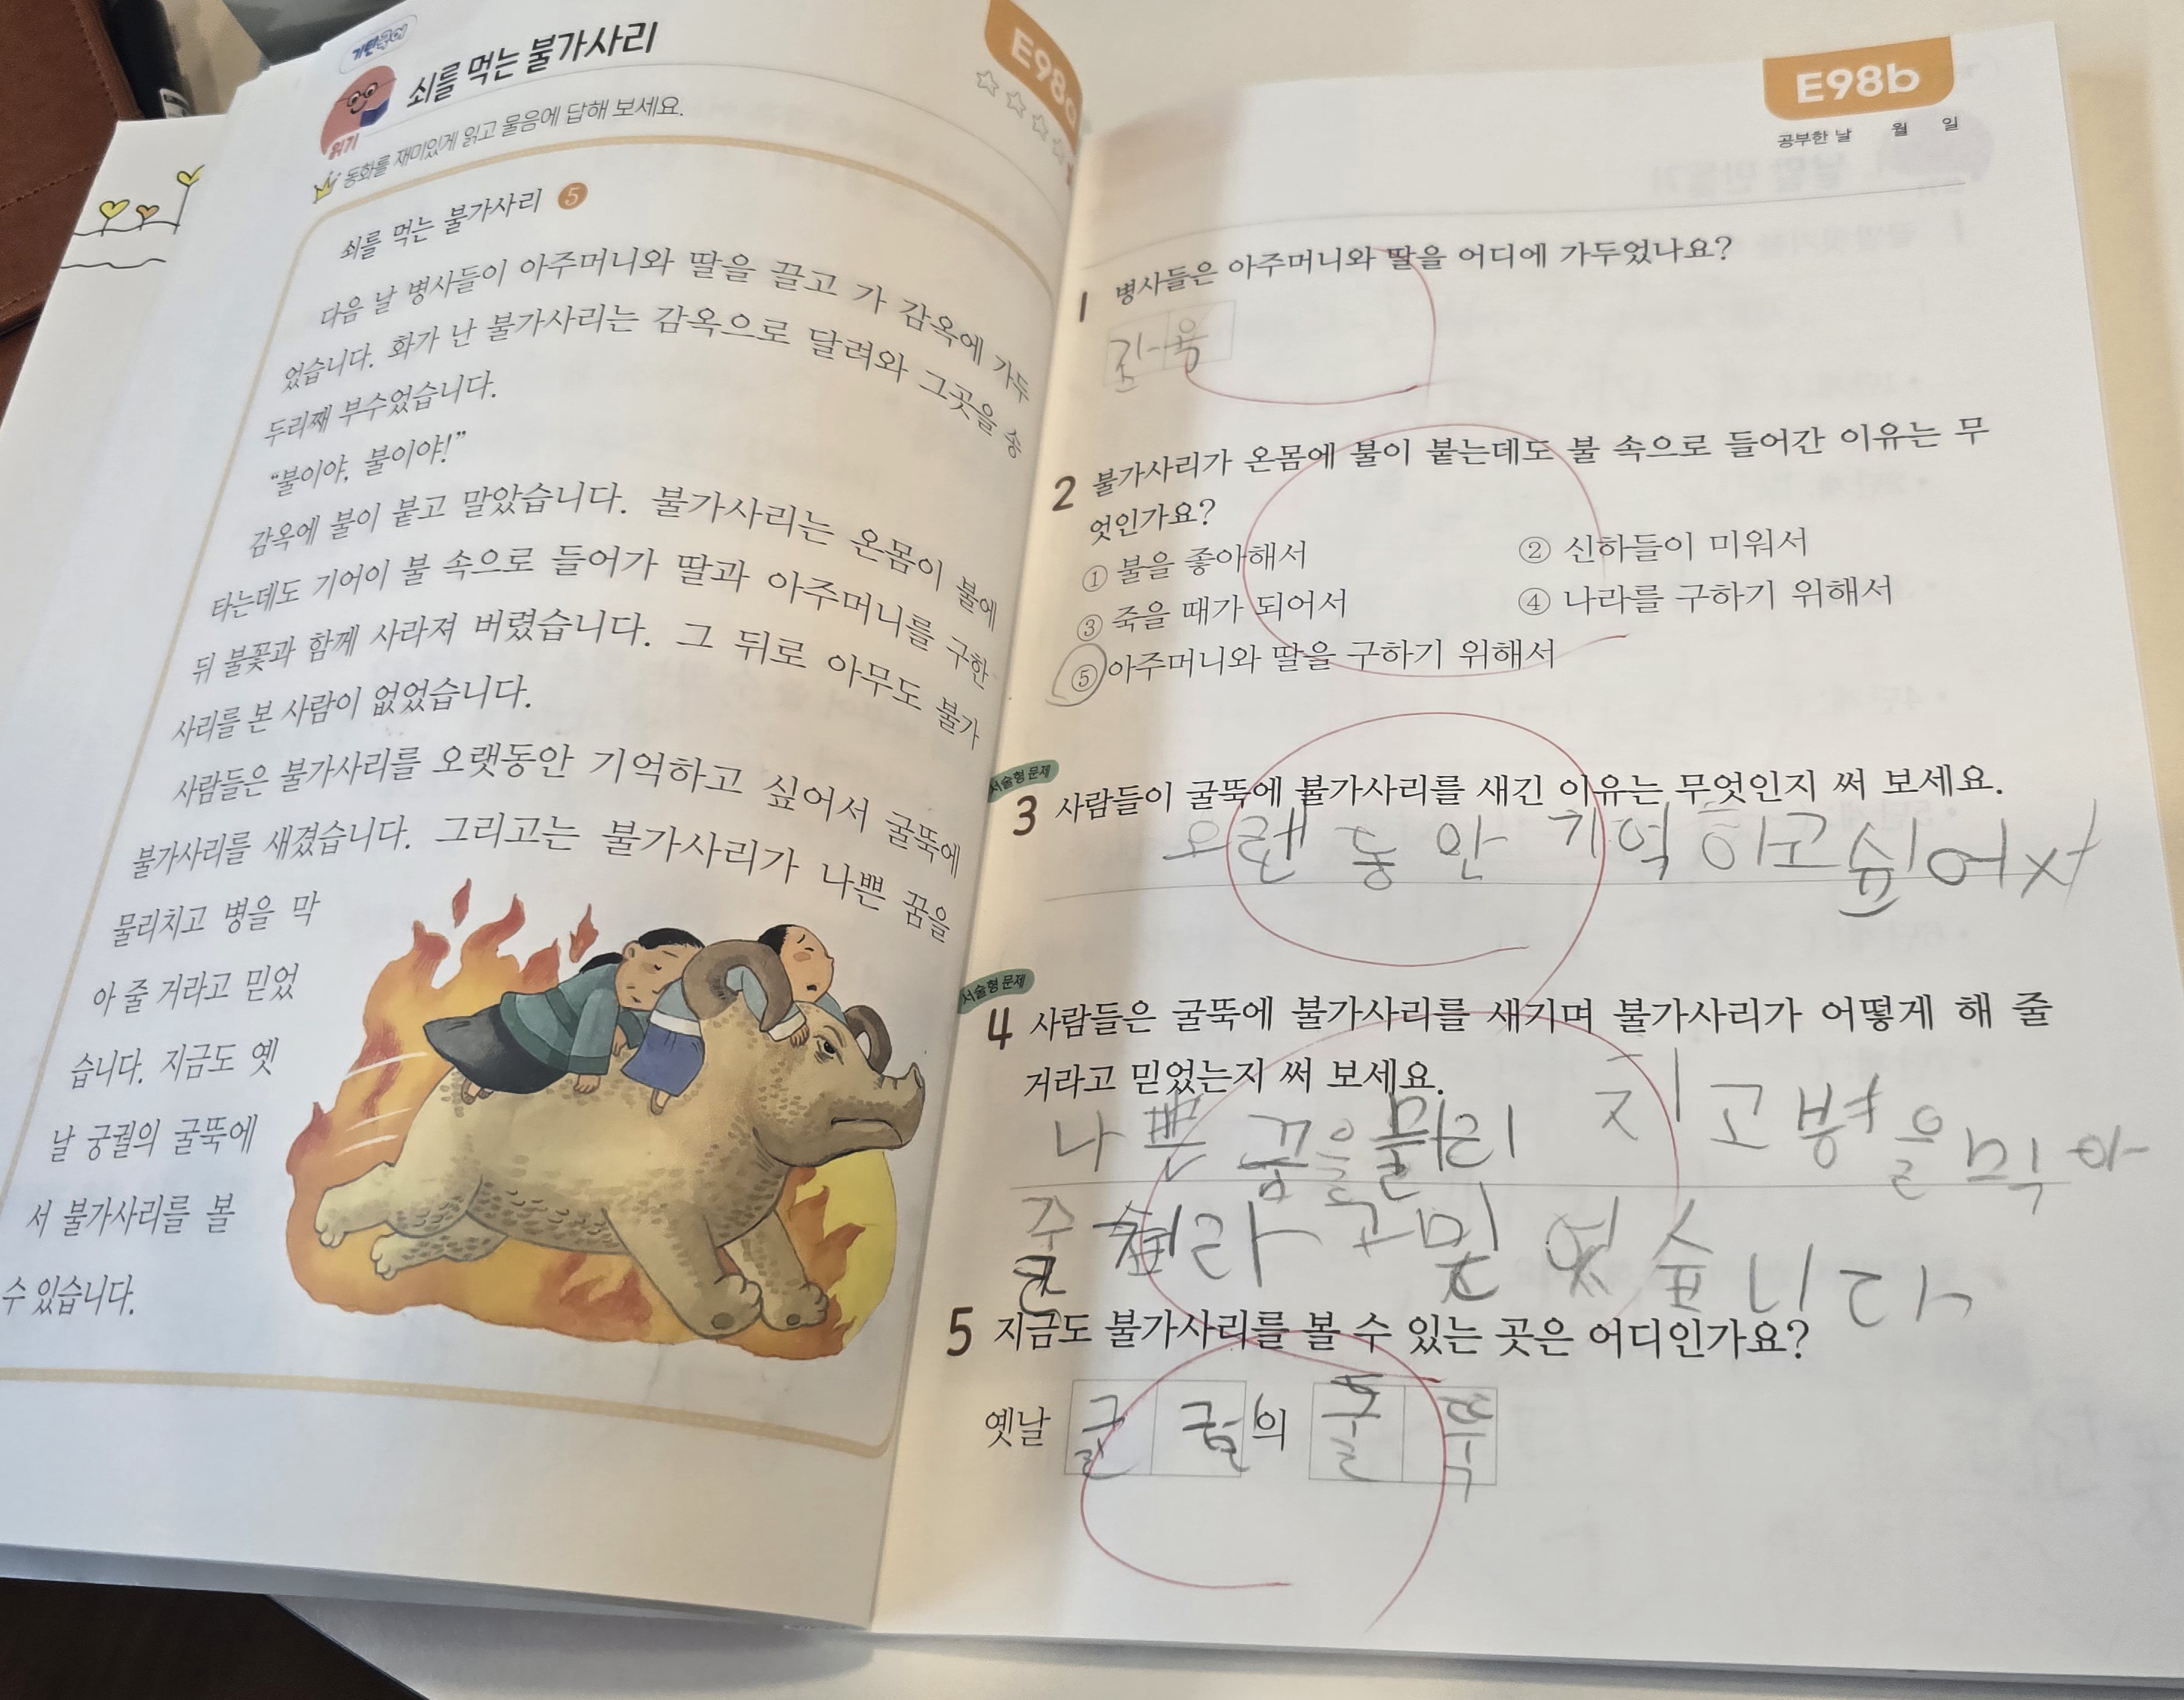 기탄국어
읽기
쇠를 먹는 불가사리
E98a
동화를 재미있게 읽고 물음에 답해 보세요.
쇠를 먹는 불가사리 5
다음 날 병사들이 아주머니와 딸을 끌고 가 감옥에 가두
었습니다. 화가 난 불가사리는 감옥으로 달려와 그곳을 송
두리째 부수었습니다.
“불이야, 불이야!”
감옥에 불이 붙고 말았습니다. 불가사리는 온몸이 불에
타는데도 기어이 불 속으로 들어가 딸과 아주머니를 구한
뒤 불꽃과 함께 사라져 버렸습니다. 그 뒤로 아무도 불가
사리를 본 사람이 없었습니다.
사람들은 불가사리를 오랫동안 기억하고 싶어서 굴뚝에
불가사리를 새겼습니다. 그리고는 불가사리가 나쁜 꿈을
물리치고 병을 막
아 줄 거라고 믿었
습니다. 지금도 옛
날 궁궐의 굴뚝에
서 불가사리를 볼
수 있습니다.
E98b
공부한 날 월 일
1 병사들은 아주머니와 딸을 어디에 가두었나요?
감옥
2 불가사리가 온몸에 불이 붙는데도 불 속으로 들어간 이유는 무
엇인가요?
① 불을 좋아해서 ② 신하들이 미워서
③ 죽을 때가 되어서 ④ 나라를 구하기 위해서
⑤ 아주머니와 딸을 구하기 위해서
서술형 문제
3 사람들이 굴뚝에 불가사리를 새긴 이유는 무엇인지 써 보세요.
오랜동안 기억하고싶어서
서술형 문제
4 사람들은 굴뚝에 불가사리를 새기며 불가사리가 어떻게 해 줄
거라고 믿었는지 써 보세요.
나쁜 꿈을물리 치고병을막아
줄 거라고믿었습니다
5 지금도 불가사리를 볼 수 있는 곳은 어디인가요?
옛날 의 굴뚝